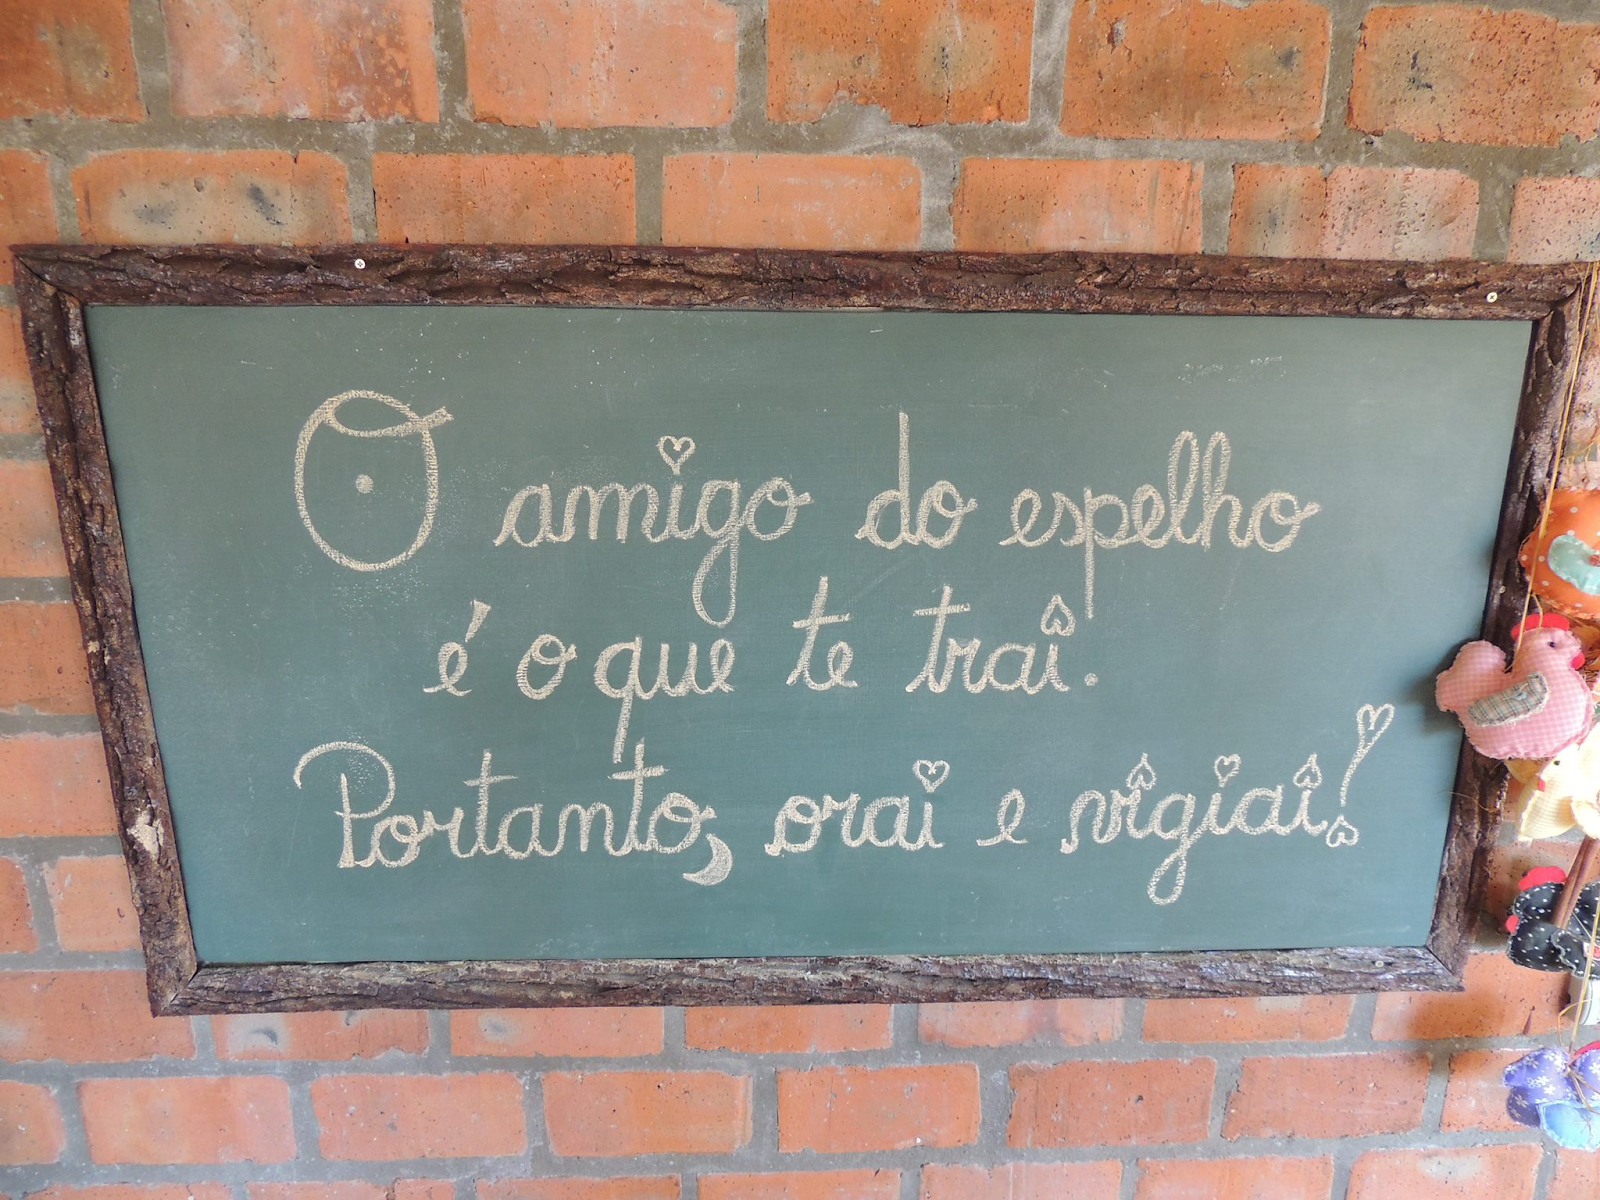 O amigo do espelho
é o que te trai.
Portanto, orai e vigiai!